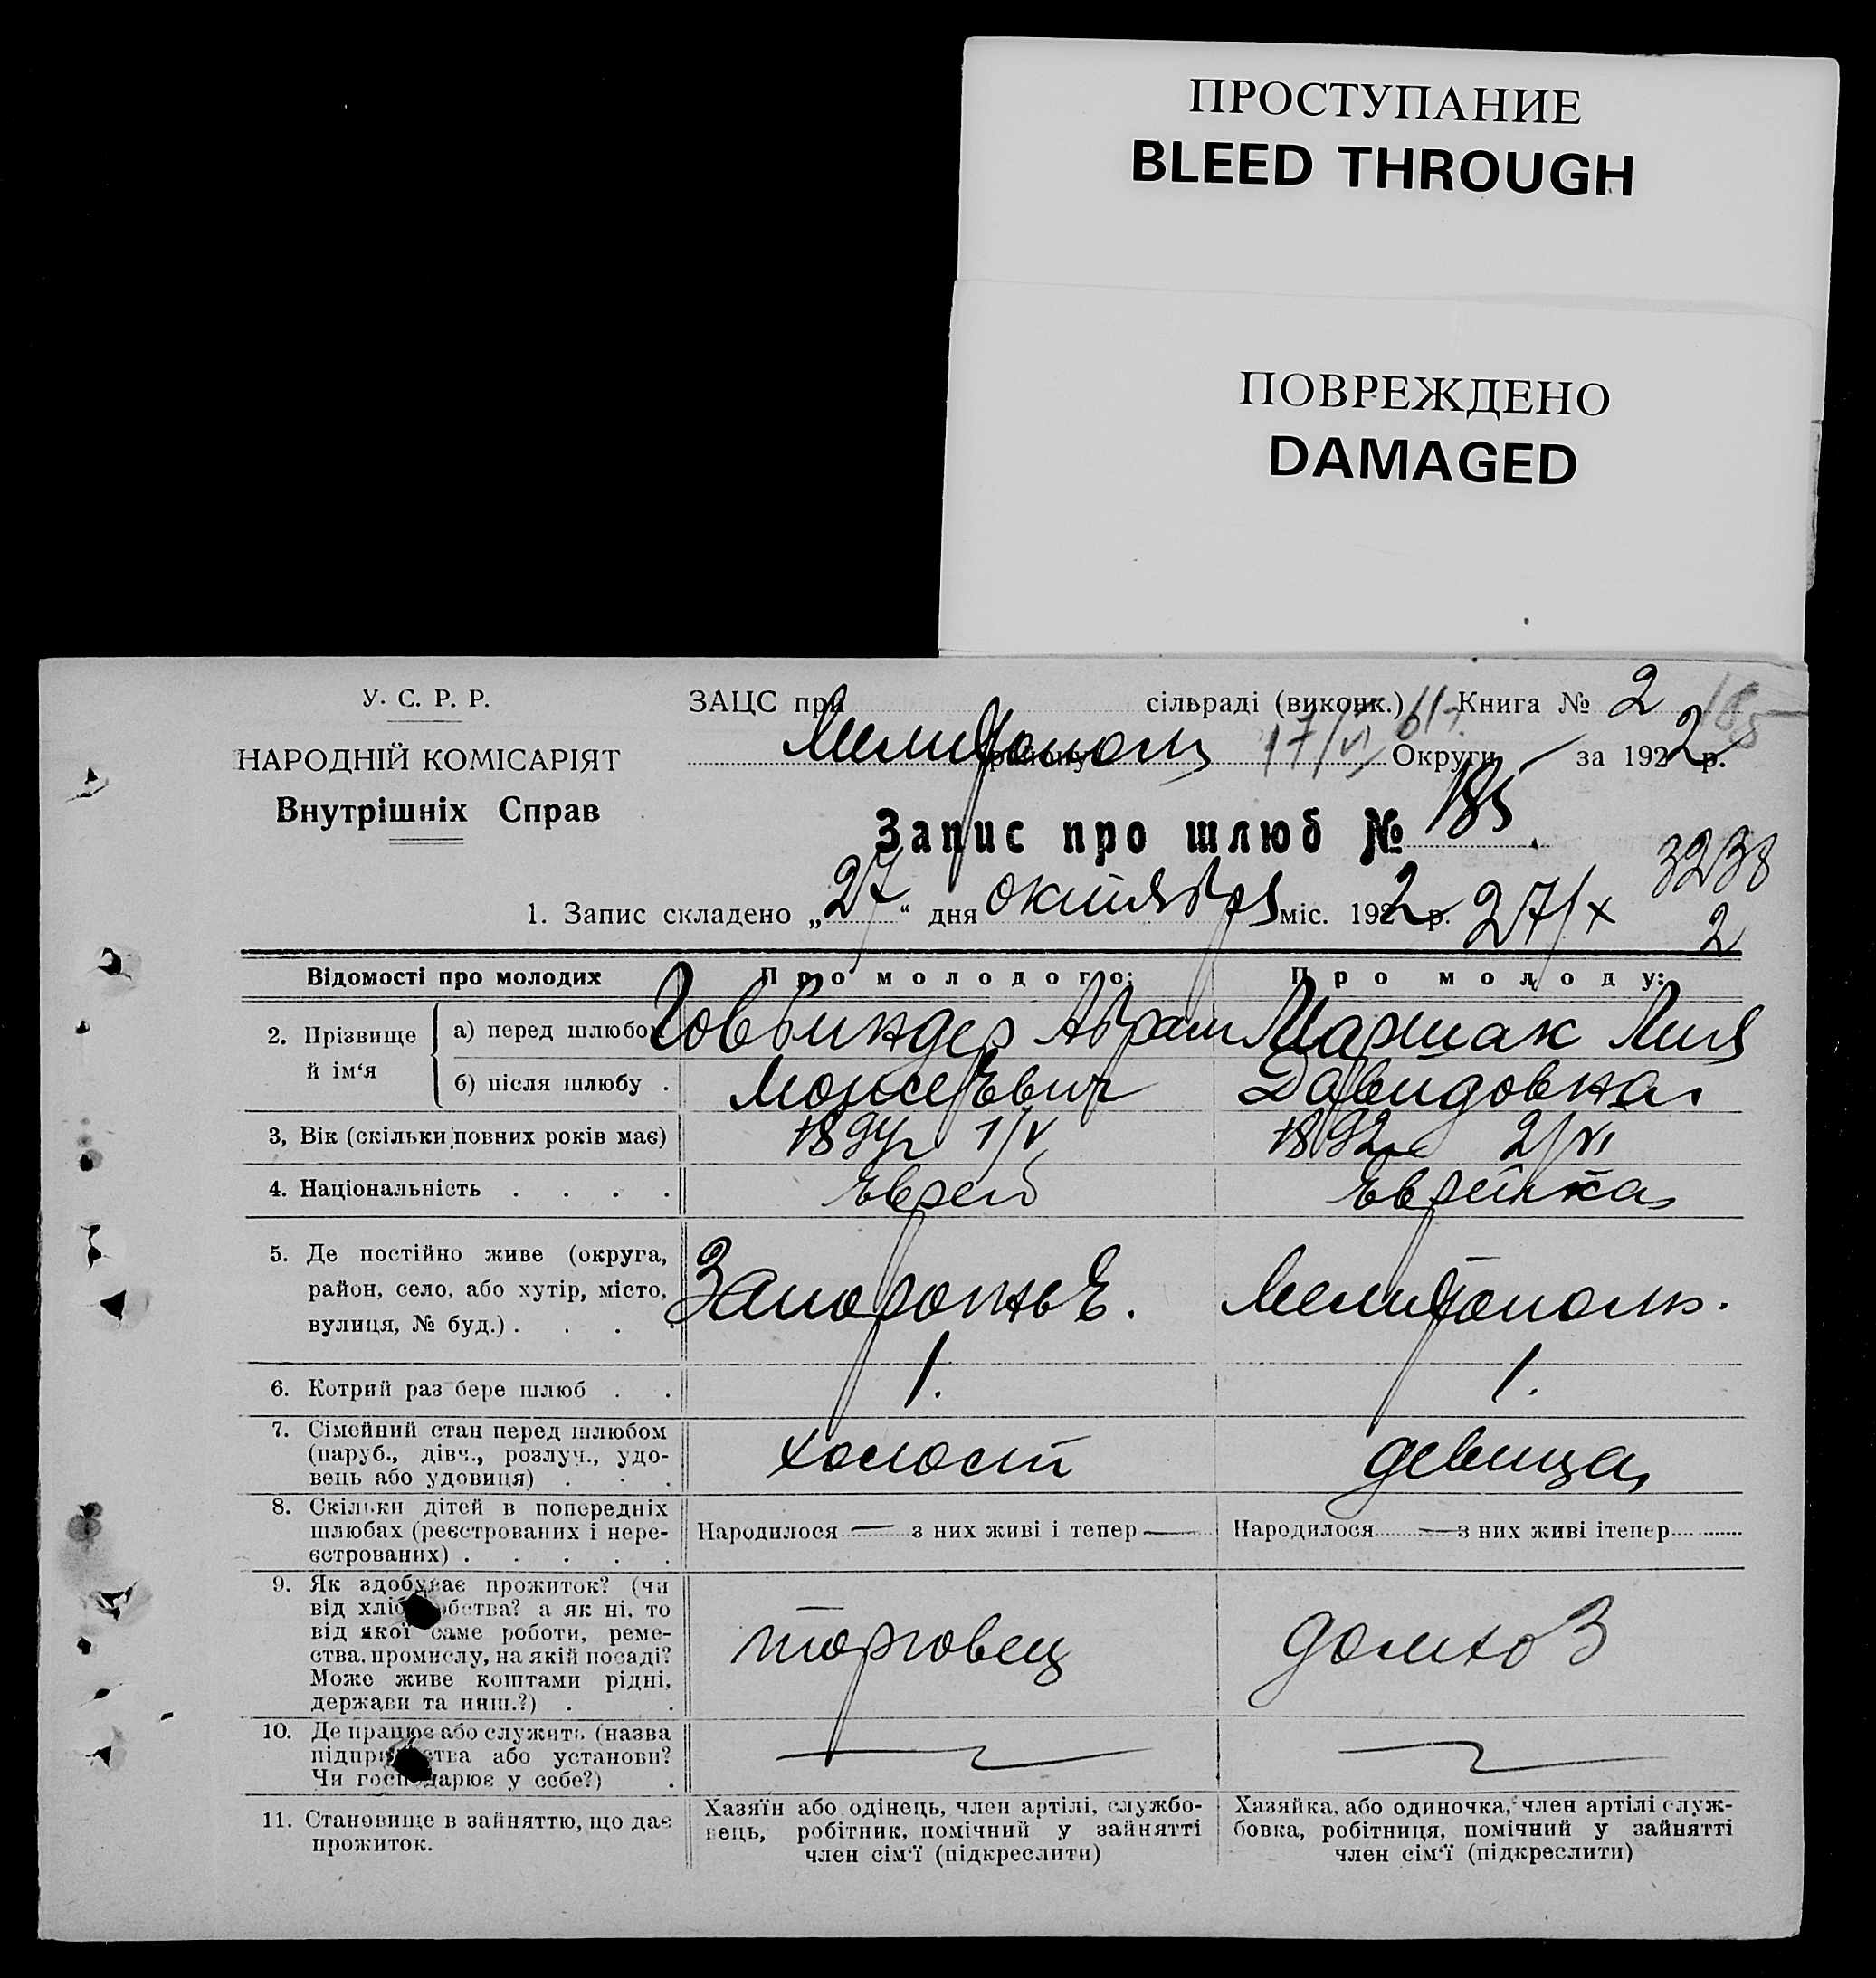 ПРОСТУПАНИЕ
BLEED THROUGH
ПОВРЕЖДЕНО
DAMAGED
У. С. Р. Р.
НАРОДНІЙ КОМІСАРІЯТ
Внутрішніх Справ
ЗАЦС при сільраді (виконк.) Книга № 2 185
Мелитополь району 17/VI 61г. Округи за 1922 р.
Запис про шлюб № 185
3238
1. Запис складено „27“ дня октября міс. 1922 р. 27/X
2
Відомості про молодих Про молодого: Про молоду:
2. Прізвище й ім‘я
а) перед шлюбом Говбиндер Абрам Маршак Лия
б) після шлюбу . Моисеевич Давидовна
3, Вік (скільки повних років має) 1894г 1/V 1892г 2/VI
4. Національність . . . . Еврей Еврейка
5. Де постійно живе (округа,
район, село, або хутір, місто,
вулиця, № буд.) . . . . Запорожьѣ. Мелитополь.
6. Котрий раз бере шлюб . . 1. 1.
7. Сімейний стан перед шлюбом
(паруб., дівч., розлуч., удо-
вець або удовиця) . . . холост девица
8. Скільки дітей в попередніх
шлюбах (реєстрованих і нере-
єстрованих) . . . . .
Народилося — з них живі і тепер — Народилося — з них живі ітепер
9. Як здобуває прожиток? (чи
від хліборобства? а як ні, то
від якої саме роботи, реме-
ства, промислу, на якій посаді?
Може живе коштами рідні,
держави та инш.?) . .
торговец домхоз
10. Де працює або служить (назва
підприємства або установи?
Чи господарює у себе?) .
11. Становище в зайняттю, що дає
прожиток.
Хазяїн або одінець, член артілі, службо-
вець, робітник, помічний у зайнятті
член сім‘ї (підкреслити)
Хазяйка, або одиночка, член артілі служ-
бовка, робітниця, помічний у зайнятті
член сім‘ї (підкреслити)